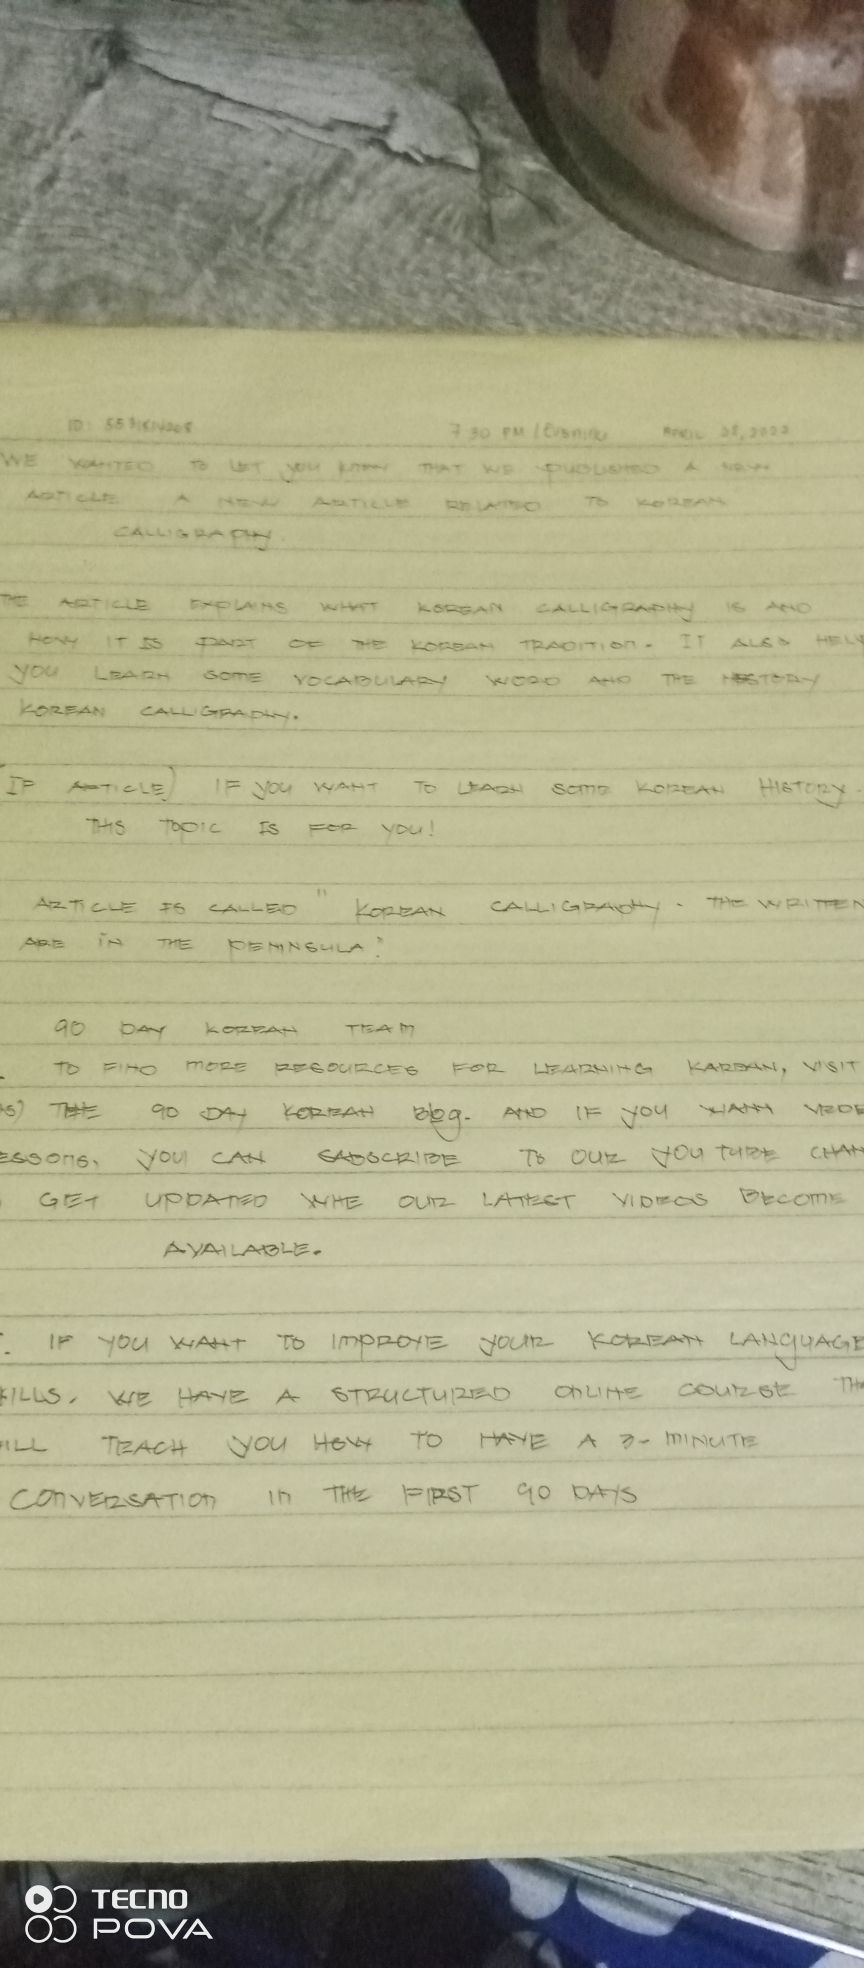 7 30 PM / EVENING APRIL 28, 2022
WE WANTED TO LET YOU KNOW THAT WE PUBLISHED A NEW
ARTICLE A NEW ARTICLE RELATED TO KOREAN
CALLIGRAPHY.
THE ARTICLE EXPLAINS WHAT KOREAN CALLIGRAPHY IS AND
HOW IT IS PART OF THE KOREAN TRADITION. IT ALSO HELP
YOU LEARN SOME VOCABULARY WORD AND THE HISTORY
KOREAN CALLIGRAPHY.
IF ARTICLE) IF YOU WANT TO LEARN SOME KOREAN HISTORY.
THIS TOPIC IS FOR YOU!
ARTICLE IS CALLED " KOREAN CALLIGRAPHY - THE WRITTEN
ARE IN THE PENINSULA"
90 DAY KOREAN TEAM
TO FIND MORE RESOURCES FOR LEARNING KAREAN, VISIT
S) THE 90 DAY KOREAN Blog. AND IF YOU WANN VIDE
ESSONS, YOU CAN SABSCRIBE TO OUR YOU TUBE CHAN
GET UPDATED WHE OUR LATEST VIDEOS BECOME
AVAILABLE.
. IF YOU WANT TO IMPROVE YOUR KOREAN LANGUAGE
KILLS. WE HAVE A STRUCTURED ONLINE COURSE THA
ILL TEACH YOU HOW TO HAVE A 3- MINUTE
CONVERSATION IN THE FIRST 90 DAYS
TECNO
POVA